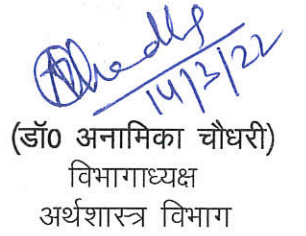 14/3/22
(डॉ0 अनामिका चौधरी)
विभागाध्यक्ष
अर्थशास्त्र विभाग